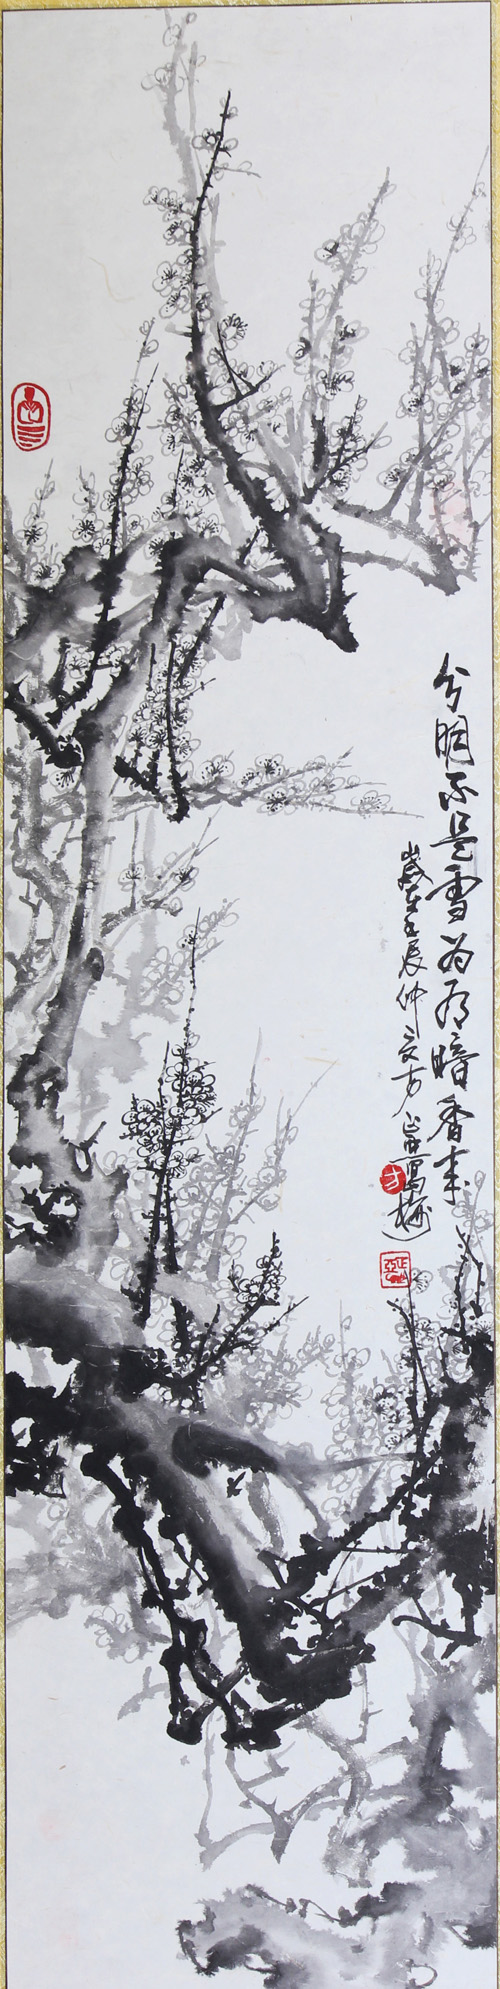 分明不是雪为有暗香来
歲在壬辰仲夏方寫梅
方